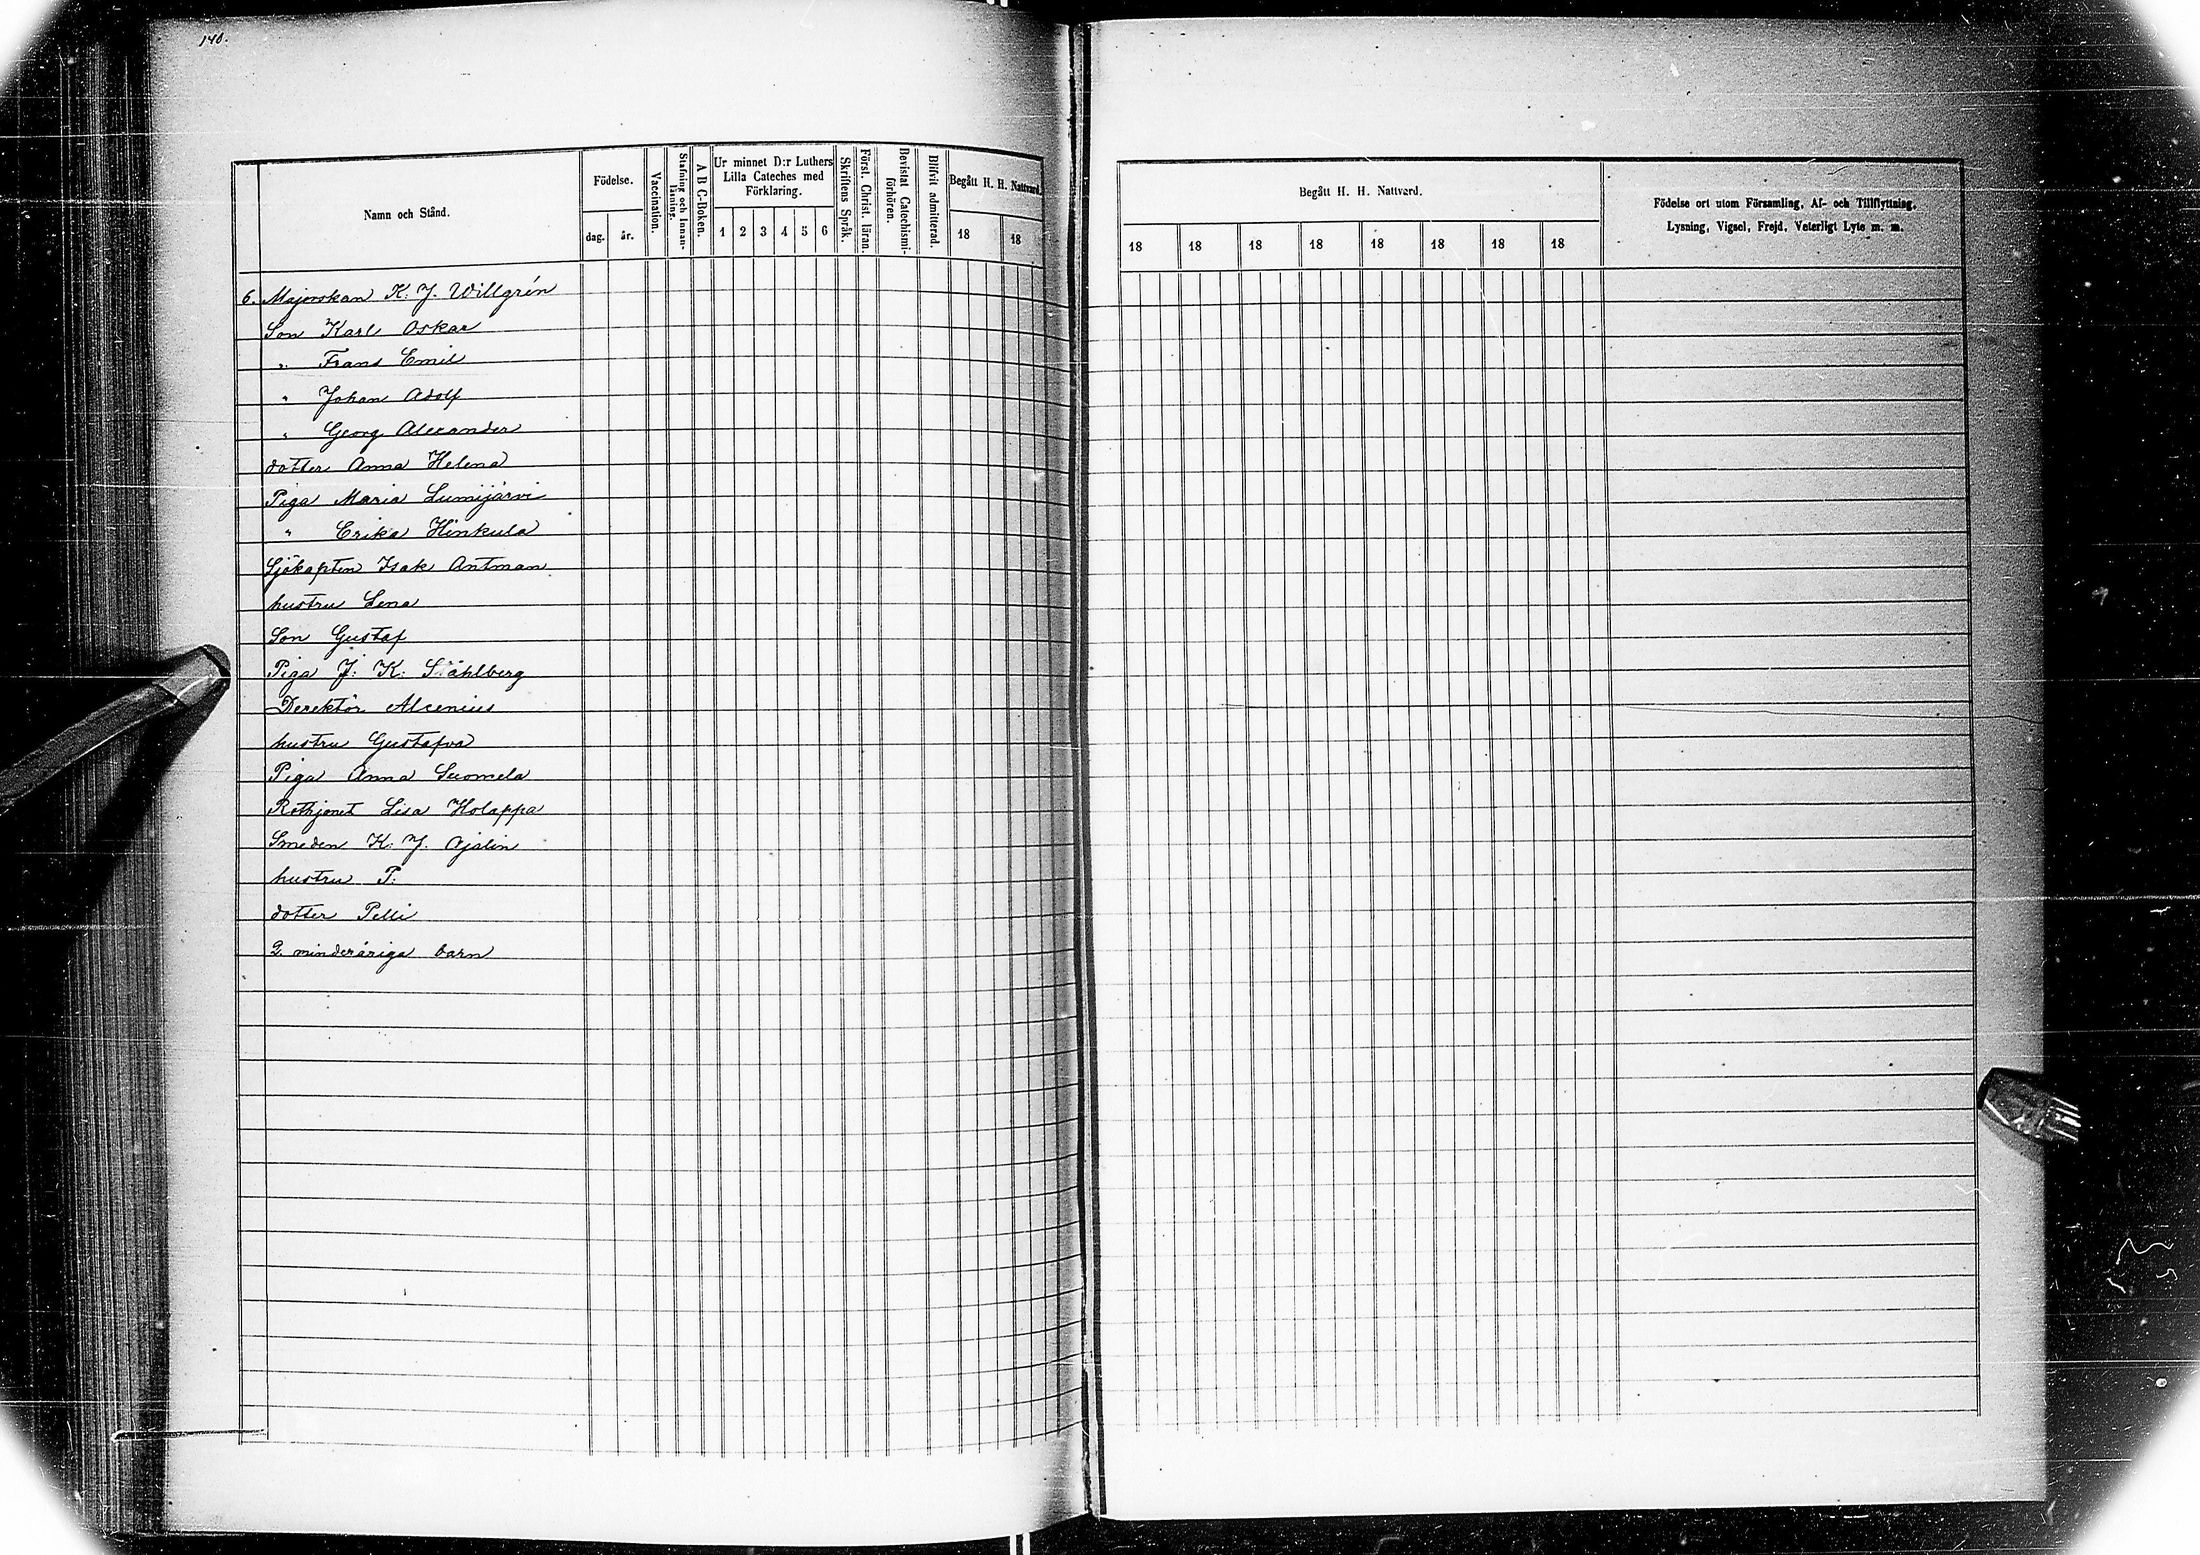 140.
Namn och Stånd.
Födelse.
dag. år.
Vaccination.
Stafning och Innan-
läsning.
A B C-Boken.
Ur minnet D:r Luthers
Lilla Cateches med
Förklaring.
1 2 3 4 5 6
Skriftens Språk.
Först. Christ. läran.
Bevistat Catechismi-
förhören.
Blifvit admitterad.
Begått H. H. Nattvard.
18 18
6. Majorskan K. J. Willgrén
Son Karl Oskar
" Frans Emil
" Johan Adolf
" Georg Alexander
dotter Anna Helena
Piga Maria Lumijärvi
" Erika Hinkula
Sjökapten Isak Antman
hustru Lena
Son Gustaf
Piga J: K: Ståhlberg
Derektör Alcenius
hustru Gustafva
Piga Anna Suomela
Rothjonet Lisa Holappa
Smeden K. J. Ajalin
hustru P.
dotter Pelli
2 minderåriga barn
Begått H. H. Nattvard.
18 18 18 18 18 18 18 18
Födelse ort utom Församling, Af- och Tillflyttning,
Lysning, Vigsel, Frejd, Veterligt Lyte m. m.